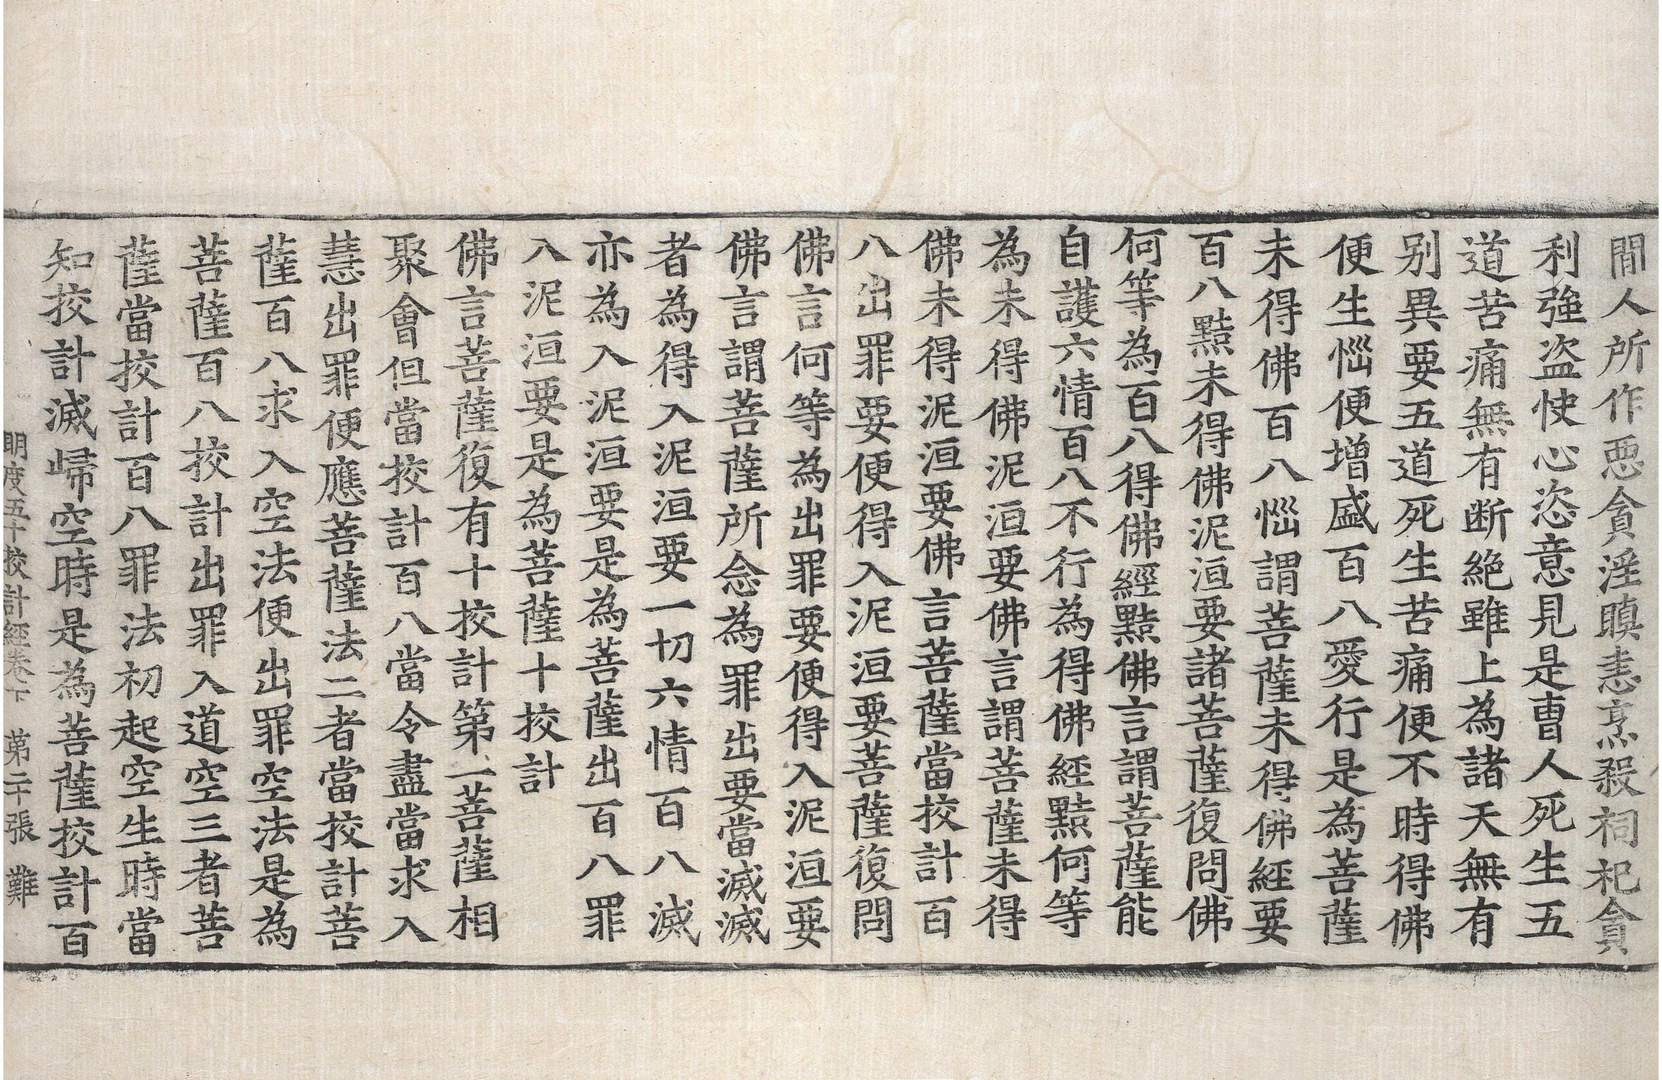 間人所作惡貪淫瞋恚烹殺祠祀貪
利強盜快心恣意見是曹人死生五
道苦痛無有断絕雖上為諸天無有
別異要五道死生苦痛便不時得佛
便生惱便增盛百八愛行是為菩薩
未得佛百八惱謂菩薩未得佛經要
百八黠未得佛泥洹要諸菩薩復問佛
何等為百八得佛經黠佛言謂菩薩能
自護六情百八不行為得佛經黠何等
為未得佛泥洹要佛言謂菩薩未得
佛未得泥洹要佛言菩薩當挍計百
八出罪要便得入泥洹要菩薩復問
佛言何等為出罪要便得入泥洹要
佛言謂菩薩所念為罪出要當滅滅
者為得入泥洹要一切六情百八滅
亦為入泥洹要是為菩薩出百八罪
入泥洹要是為菩薩十挍計
佛言菩薩復有十挍計第一菩薩相
聚會但當挍計百八當令盡當求入
慧出罪便應菩薩法二者當挍計菩
薩百八求入空法便出罪空法是為
菩薩百八挍計出罪入道空三者菩
薩當挍計百八罪法初起空生時當
知挍計滅歸空時是為菩薩挍計百
明度五十挍計經卷下 第二十張 難